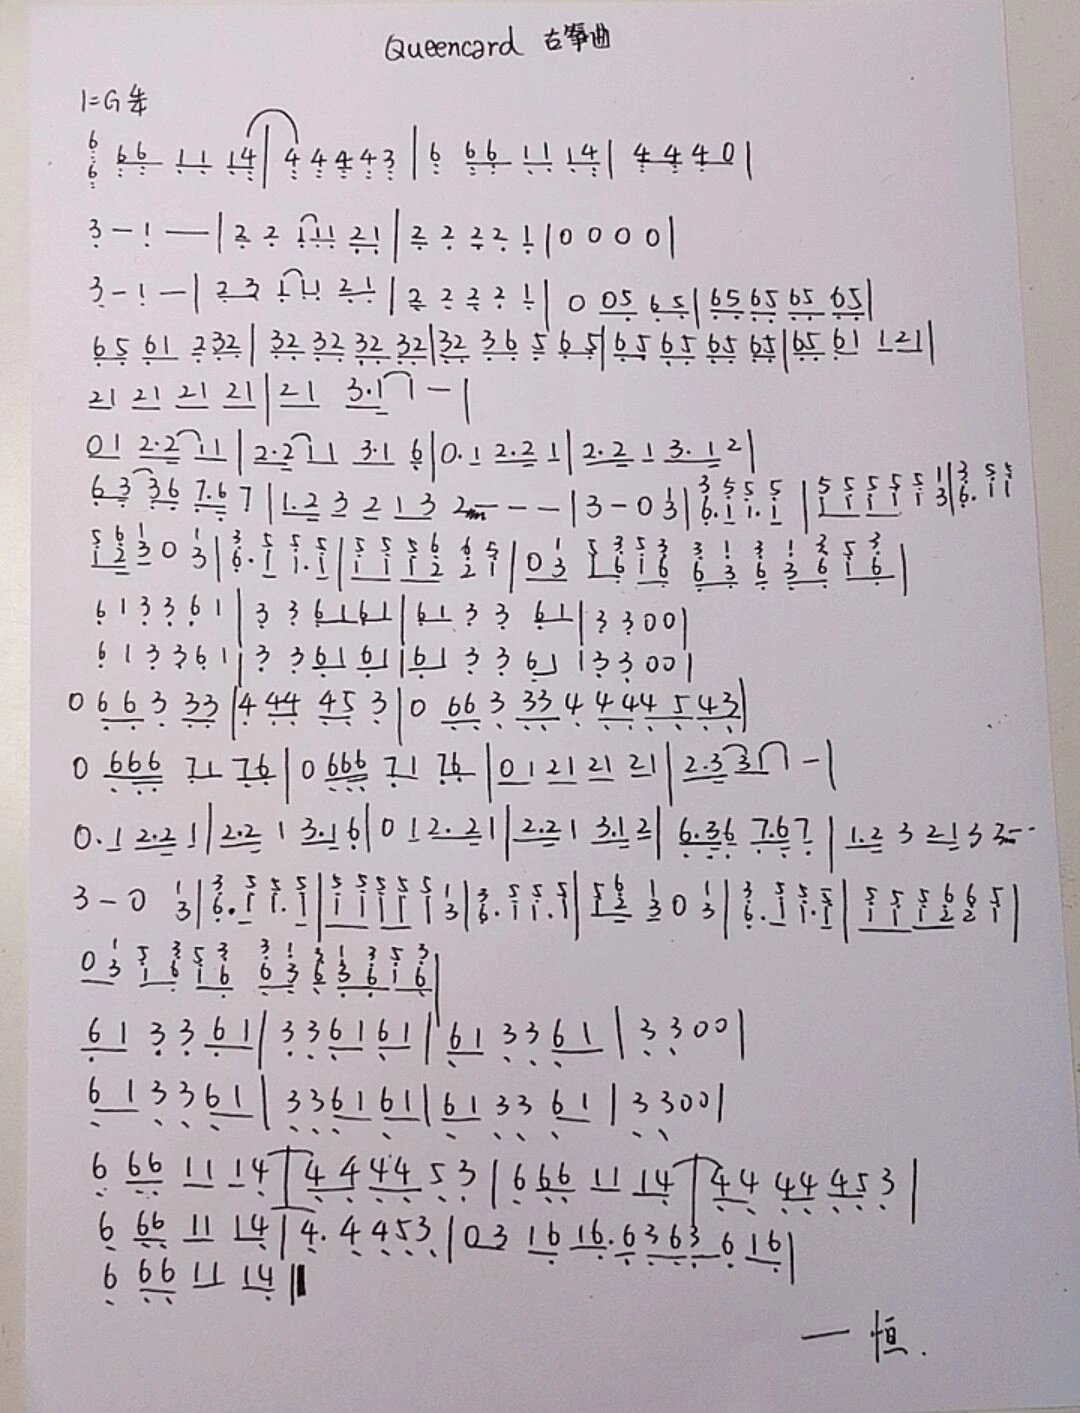 Queencard 古筝曲
1=G 4/4
6 66 11 14 | 4 4 4 4 3 | 6 66 11 14 | 4 4 4 0 |
6
3 - 1 — | 2 2 111 21 | 2 2 2 2 1 | 0 0 0 0 |
3 - 1 — | 2 3 1 11 21 | 2 2 2 2 1 | 0 05 65 | 65 65 65 65 |
65 61 232 | 32 32 32 32 | 32 36 5 65 | 65 65 65 65 | 65 61 121 |
21 21 21 21 | 21 3.1 1 - |
01 2.2 11 | 2.2 11 3.1 6 | 0.1 2.2 1 | 2.2 1 3.1 2 |
63 36 7.6 7 | 1.2 3 2 1 3 2 - - - | 3 - 0 1 | 3 5 5 5 | 5 5 5 5 5 1 | 3 5 5
3 | 6.1 1.1 | 1 1 1 1 1 3 | 6.1 1
5 6 1 0 1 | 3 5 5 5 | 5 5 5 6 6 5 | 0 1 5 3 5 3 3 1 3 1 3 5 3 |
1 2 3 3 | 6.1 1.1 | 1 1 1 2 2 1 | 3 1 6 1 6 6 3 6 3 6 1 6
6 1 3 3 6 1 | 3 3 61 61 | 61 3 3 61 | 3 3 0 0 |
6 1 3 3 6 1 | 3 3 61 61 | 61 3 3 61 | 3 3 0 0 |
0 66 3 33 | 4 44 45 3 | 0 66 3 33 4 4 44 5 43 |
0 666 71 76 | 0 666 71 76 | 01 21 21 21 | 2.3 3 - |
0.1 2.2 1 | 2.2 1 3.1 6 | 0 1 2.2 1 | 2.2 1 3.1 2 | 6.36 7.67 | 1.2 3 21 3 3 --
3 - 0 1 | 3 5 5 5 | 5 5 5 5 5 1 | 3 5 5 5 | 5 6 1 0 1 | 3 5 5 5 | 5 5 5 6 6 5 |
3 | 6.1 1.1 | 1 1 1 1 1 3 | 6.1 1.1 | 1 2 3 3 | 6.1 1.1 | 1 1 1 2 2 1 |
0 1 5 3 5 3 3 1 3 1 3 5 3 |
3 1 6 1 6 6 3 6 3 6 1 6
61 3 3 61 | 3 3 61 61 | 61 3 3 61 | 3 3 0 0 |
61 3 3 61 | 3 3 61 61 | 61 3 3 61 | 3 3 0 0 |
6 66 11 14 | 4 4 44 5 3 | 6 66 11 14 | 44 44 45 3 |
6 66 11 14 | 4. 4 4 5 3 | 03 16 16. 6 3 6 3 6 16 |
6 66 11 14 ‖
一恒.